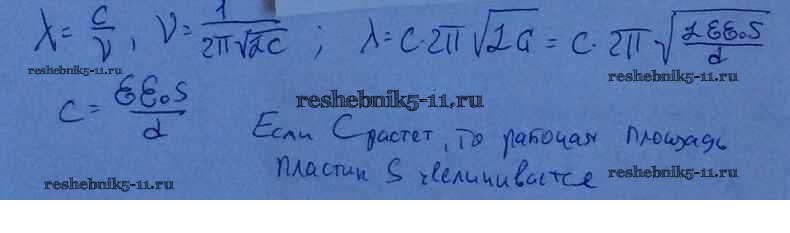 λ = c/ν, ν = 1/2π√LC ; λ = c·2π√LC = c·2π√(Lεε₀S/d)
reshebnik5-11.ru
C = εε₀S/d
reshebnik5-11.ru
Если C растет, то рабочая площадь
пластин S увеличивается
reshebnik5-11.ru
reshebnik5-11.ru